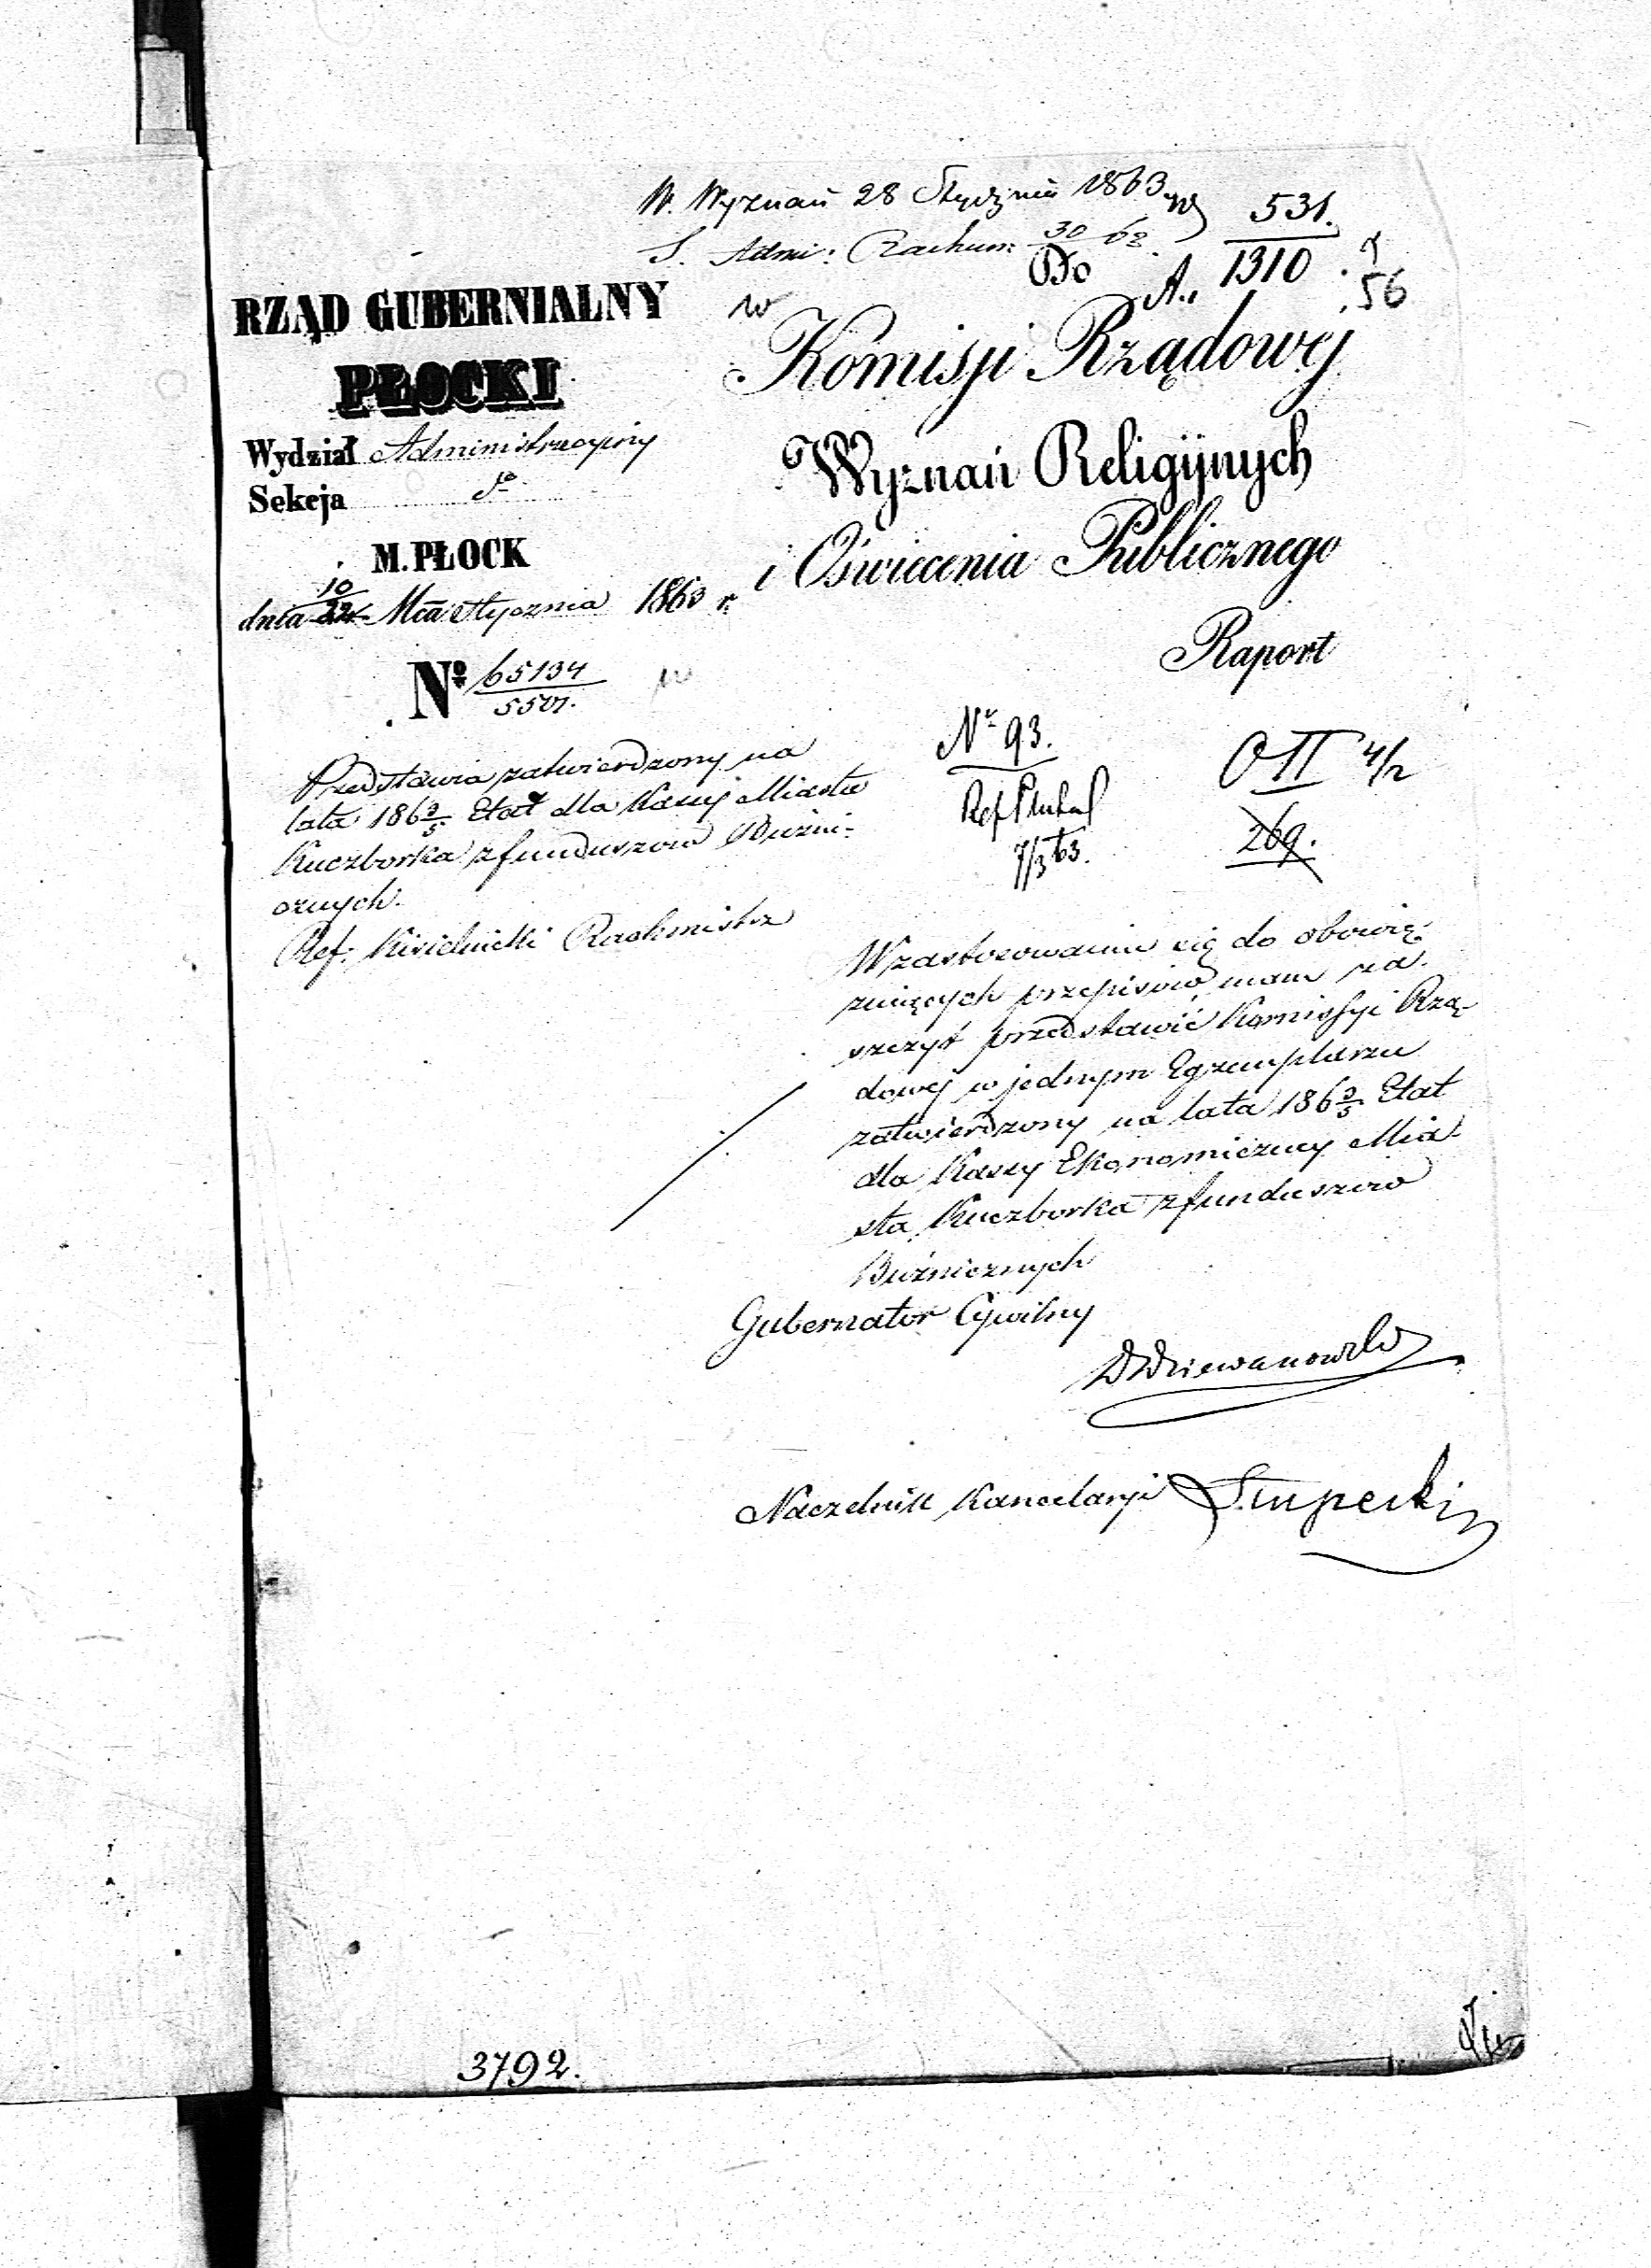 W. Wyznań 28 Stycznia 1863
531.
1310
S. Admi: Rachun: 30
56
RZĄD GUBERNIALNY
PŁOCKI
Wydział Administracyjny
Sekcja
M. PŁOCK
dnia 10/22 Mca Stycznia 1863 r.
Nº 65134/5507.
Do
Komisji Rządowej
Wyznań Religijnych
i Oświecenia Publicznego
Raport
Nr 93.
7/3 63.
O II 4/2
269.
Przedstawia zatwierdzony na
lata 186 3/5 Etat dla Kassy Miasta
Kuczborka z funduszow Bużni-
cznych.
Ref. Kisielnicki Rachmistrz
W zastosowaniu się do obowią-
zujących przepisów mam za-
szczyt przedstawić Komissyi Rzą-
dowej w jednym Egzemplarzu
zatwierdzony na lata 186 3/5 Etat
dla Kassy Ekonomicznej Mia-
sta Kuczborka z funduszow
Bużnicznych
Gubernator Cywilny
Dziewanowski
Naczelnik Kancelaryi Słupecki
3792.